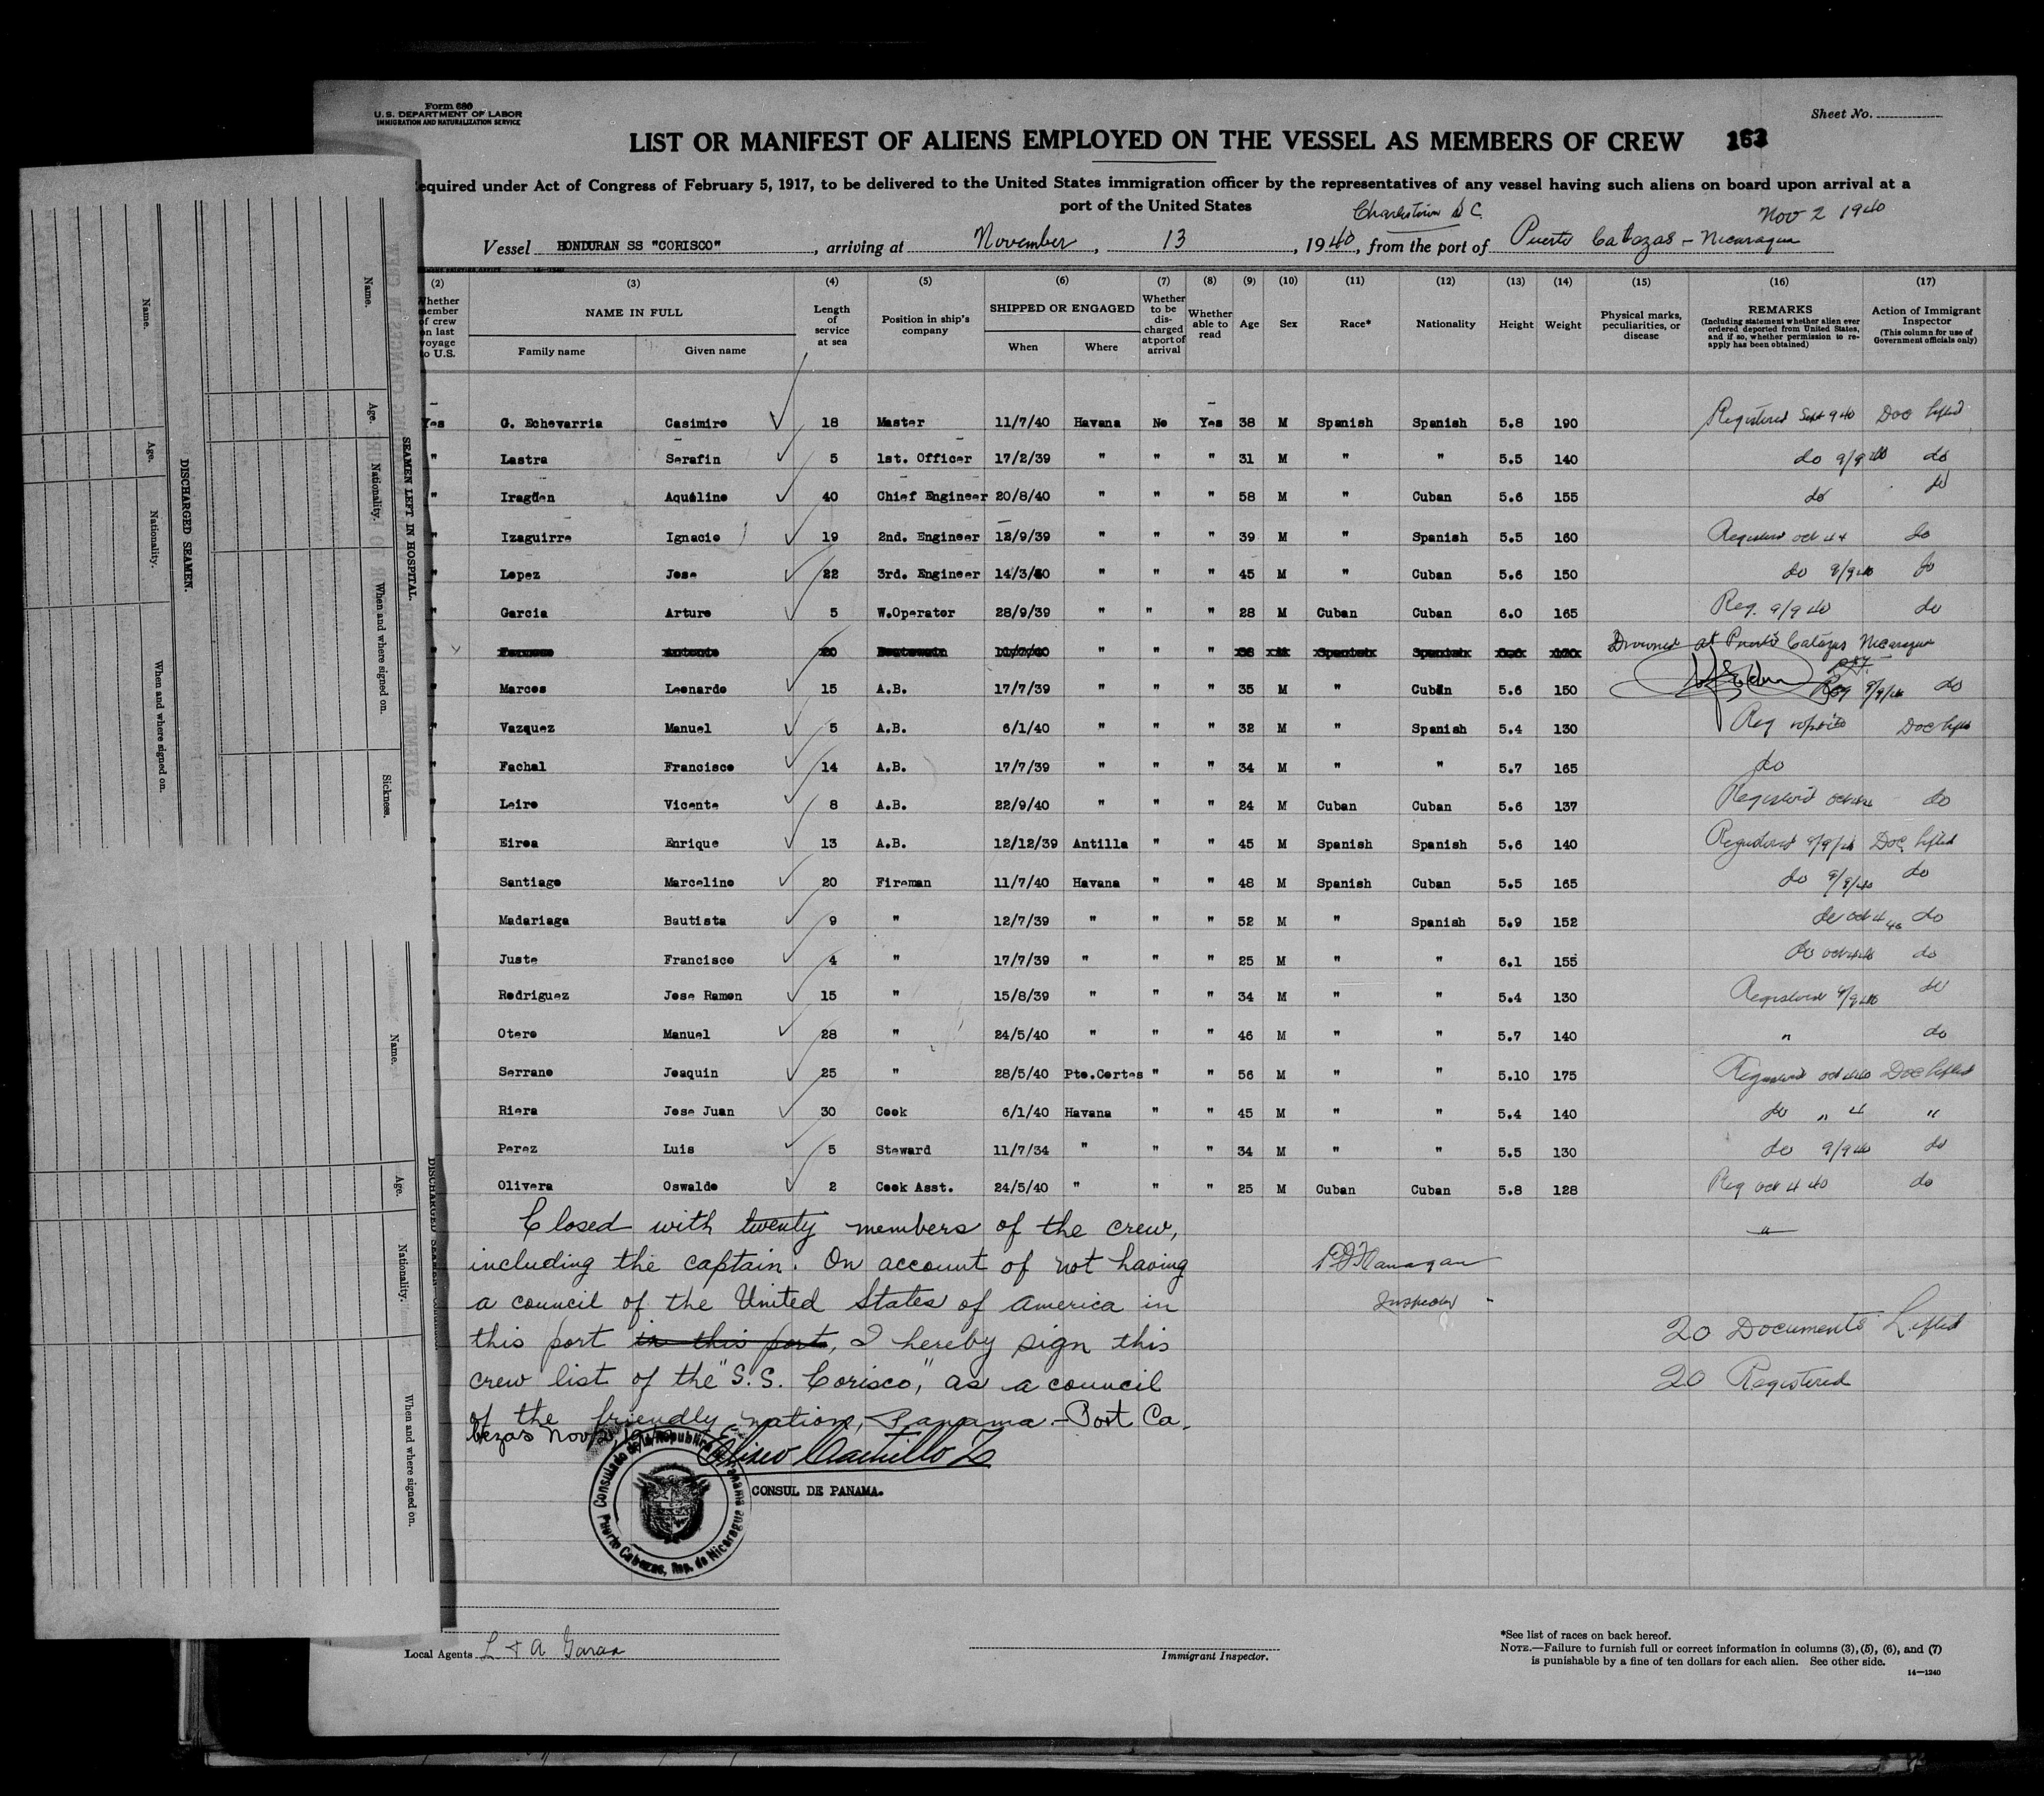 Form 680
U. S. DEPARTMENT OF LABOR
IMMIGRATION AND NATURALIZATION SERVICE
Sheet No.
LIST OR MANIFEST OF ALIENS EMPLOYED ON THE VESSEL AS MEMBERS OF CREW 163
equired under Act of Congress of February 5, 1917, to be delivered to the United States immigration officer by the representatives of any vessel having such aliens on board upon arrival at a
port of the United States
Charlestown S C. Nov 2 1940
Vessel HONDURAN SS "CORISCO", arriving at November, 13, 1940, from the port of Puerto Cabezas - Nicaragua
(2) (3) (4) (5) (6) (7) (8) (9) (10) (11) (12) (13) (14) (15) (16) (17)
Whether member of crew on last voyage to U.S. NAME IN FULL Family name Given name Length of service at sea Position in ship's company SHIPPED OR ENGAGED When Where Whether to be discharged at port of arrival Whether able to read Age Sex Race* Nationality Height Weight Physical marks, peculiarities, or disease REMARKS (Including statement whether alien ever ordered deported from United States, and if so, whether permission to re-apply has been obtained) Action of Immigrant Inspector (This column for use of Government officials only)
Yes G. Echevarria Casimiro 18 Master 11/7/40 Havana No Yes 38 M Spanish Spanish 5.8 190 Registered Sept 9 40 Doc lifted
" Lastra Serafin 5 1st. Officer 17/2/39 " " " 31 M " " 5.5 140 do 9/9 40 do
" Iragden Aquéline 40 Chief Engineer 20/8/40 " " " 58 M " Cuban 5.6 155 do do
" Izaguirre Ignacio 19 2nd. Engineer 12/9/39 " " " 39 M " Spanish 5.5 160 Registered oct 4 do
" Lopez Jose 22 3rd. Engineer 14/3/40 " " " 45 M " Cuban 5.6 150 do 9/9 40 do
" Garcia Arturo 5 W.Operator 28/9/39 " " " 28 M Cuban Cuban 6.0 165 Reg. 9/9 40 do
" Antonio 20 Boatswain 11/7/40 " " " Spanish Spanish Drowned at Puerto Cabezas Nicaragua
" Marcos Leonardo 15 A.B. 17/7/39 " " " 35 M " Cuban 5.6 150 Reg 9/9/40 do
" Vazquez Manuel 5 A.B. 6/1/40 " " " 32 M " Spanish 5.4 130 Reg Doc lifted
" Fachal Francisco 14 A.B. 17/7/39 " " " 34 M " " 5.7 165 do
" Leiro Vicente 8 A.B. 22/9/40 " " " 24 M Cuban Cuban 5.6 137 Registered do
" Eiroa Enrique 13 A.B. 12/12/39 Antilla " " 45 M Spanish Spanish 5.6 140 Registered 9/9/40 Doc lifted
" Santiago Marcelino 20 Fireman 11/7/40 Havana " " 48 M Spanish Cuban 5.5 165 do 9/9/40 do
" Madariaga Bautista 9 " 12/7/39 " " " 52 M " Spanish 5.9 152 do oct 4 40 do
" Juste Francisco 4 " 17/7/39 " " " 25 M " " 6.1 155 do oct 4 40 do
" Rodriguez Jose Ramon 15 " 15/8/39 " " " 34 M " " 5.4 130 Registered 9/9 40 do
" Otero Manuel 28 " 24/5/40 " " " 46 M " " 5.7 140 " do
" Serrano Joaquin 25 " 28/5/40 Pto.Cortes " " 56 M " " 5.10 175 Registered oct 4 40 Doc lifted
" Riera Jose Juan 30 Cook 6/1/40 Havana " " 45 M " " 5.4 140 do " 4 "
" Perez Luis 5 Steward 11/7/34 " " " 34 M " " 5.5 130 do 9/9 40 do
Olivera Oswaldo 2 Cook Asst. 24/5/40 " " " 25 M Cuban Cuban 5.8 128 Reg oct 4 40 do
Closed with twenty members of the crew,
including the captain. On account of not having
a council of the United States of America in
this port in this port, I hereby sign this
crew list of the "S.S. Corisco," as a council
of the friendly nation, Panama.- Port Ca-
bezas Nov 2, 19
Eliseo Castillo Z
CONSUL DE PANAMA.
Consulado de la Republica de Panama
Puerto Cabezas, Rep. de Nicaragua
Flanagan
Inspector
20 Documents Lifted
20 Registered
Local Agents
Immigrant Inspector.
*See list of races on back hereof.
NOTE.—Failure to furnish full or correct information in columns (3), (5), (6), and (7)
is punishable by a fine of ten dollars for each alien. See other side.
14—1240
SEAMEN LEFT IN HOSPITAL.
Name. Age. Nationality. When and where signed on. Sickness.
DISCHARGED SEAMEN.
Name. Age. Nationality. When and where signed on.
Name. Age. Nationality. When and where signed on.